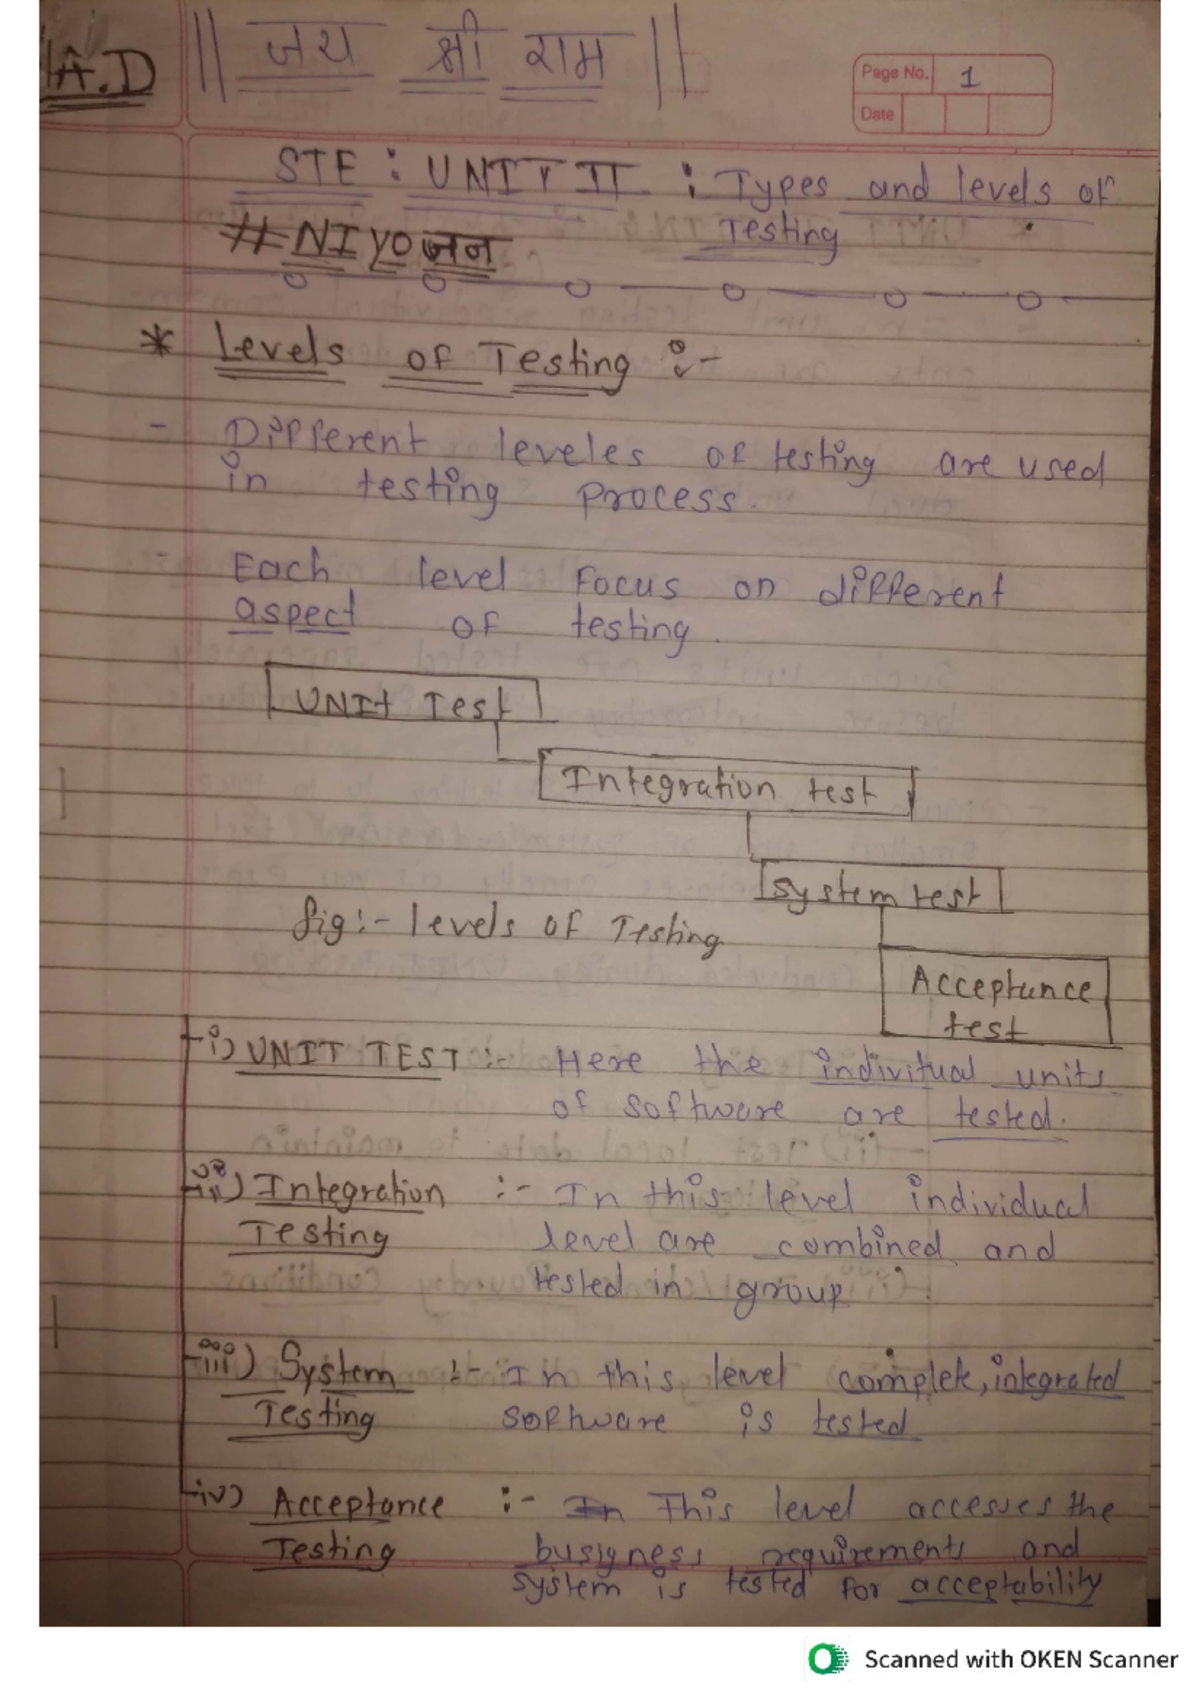 A.D
|| जय श्री राम ||
Page No. 1
Date
STE : UNIT II : Types and levels of
Testing
#NIYOजन
* Levels of Testing :-
- Different leveles of testing are used
in testing process.
- Each level Focus on different
aspect of testing.
UNIt Test
Integration test
System test
fig:- levels of Testing
Acceptance
test
i) UNIT TEST :- Here the indivitual units
of software are tested.
ii) Integration :- In this level individual
Testing level are combined and
tested in group
iii) System :- In this level complete, integrated
Testing software is tested
iv) Acceptance :- In This level accesses the
Testing busigness requirements and
system is tested for acceptability
Scanned with OKEN Scanner